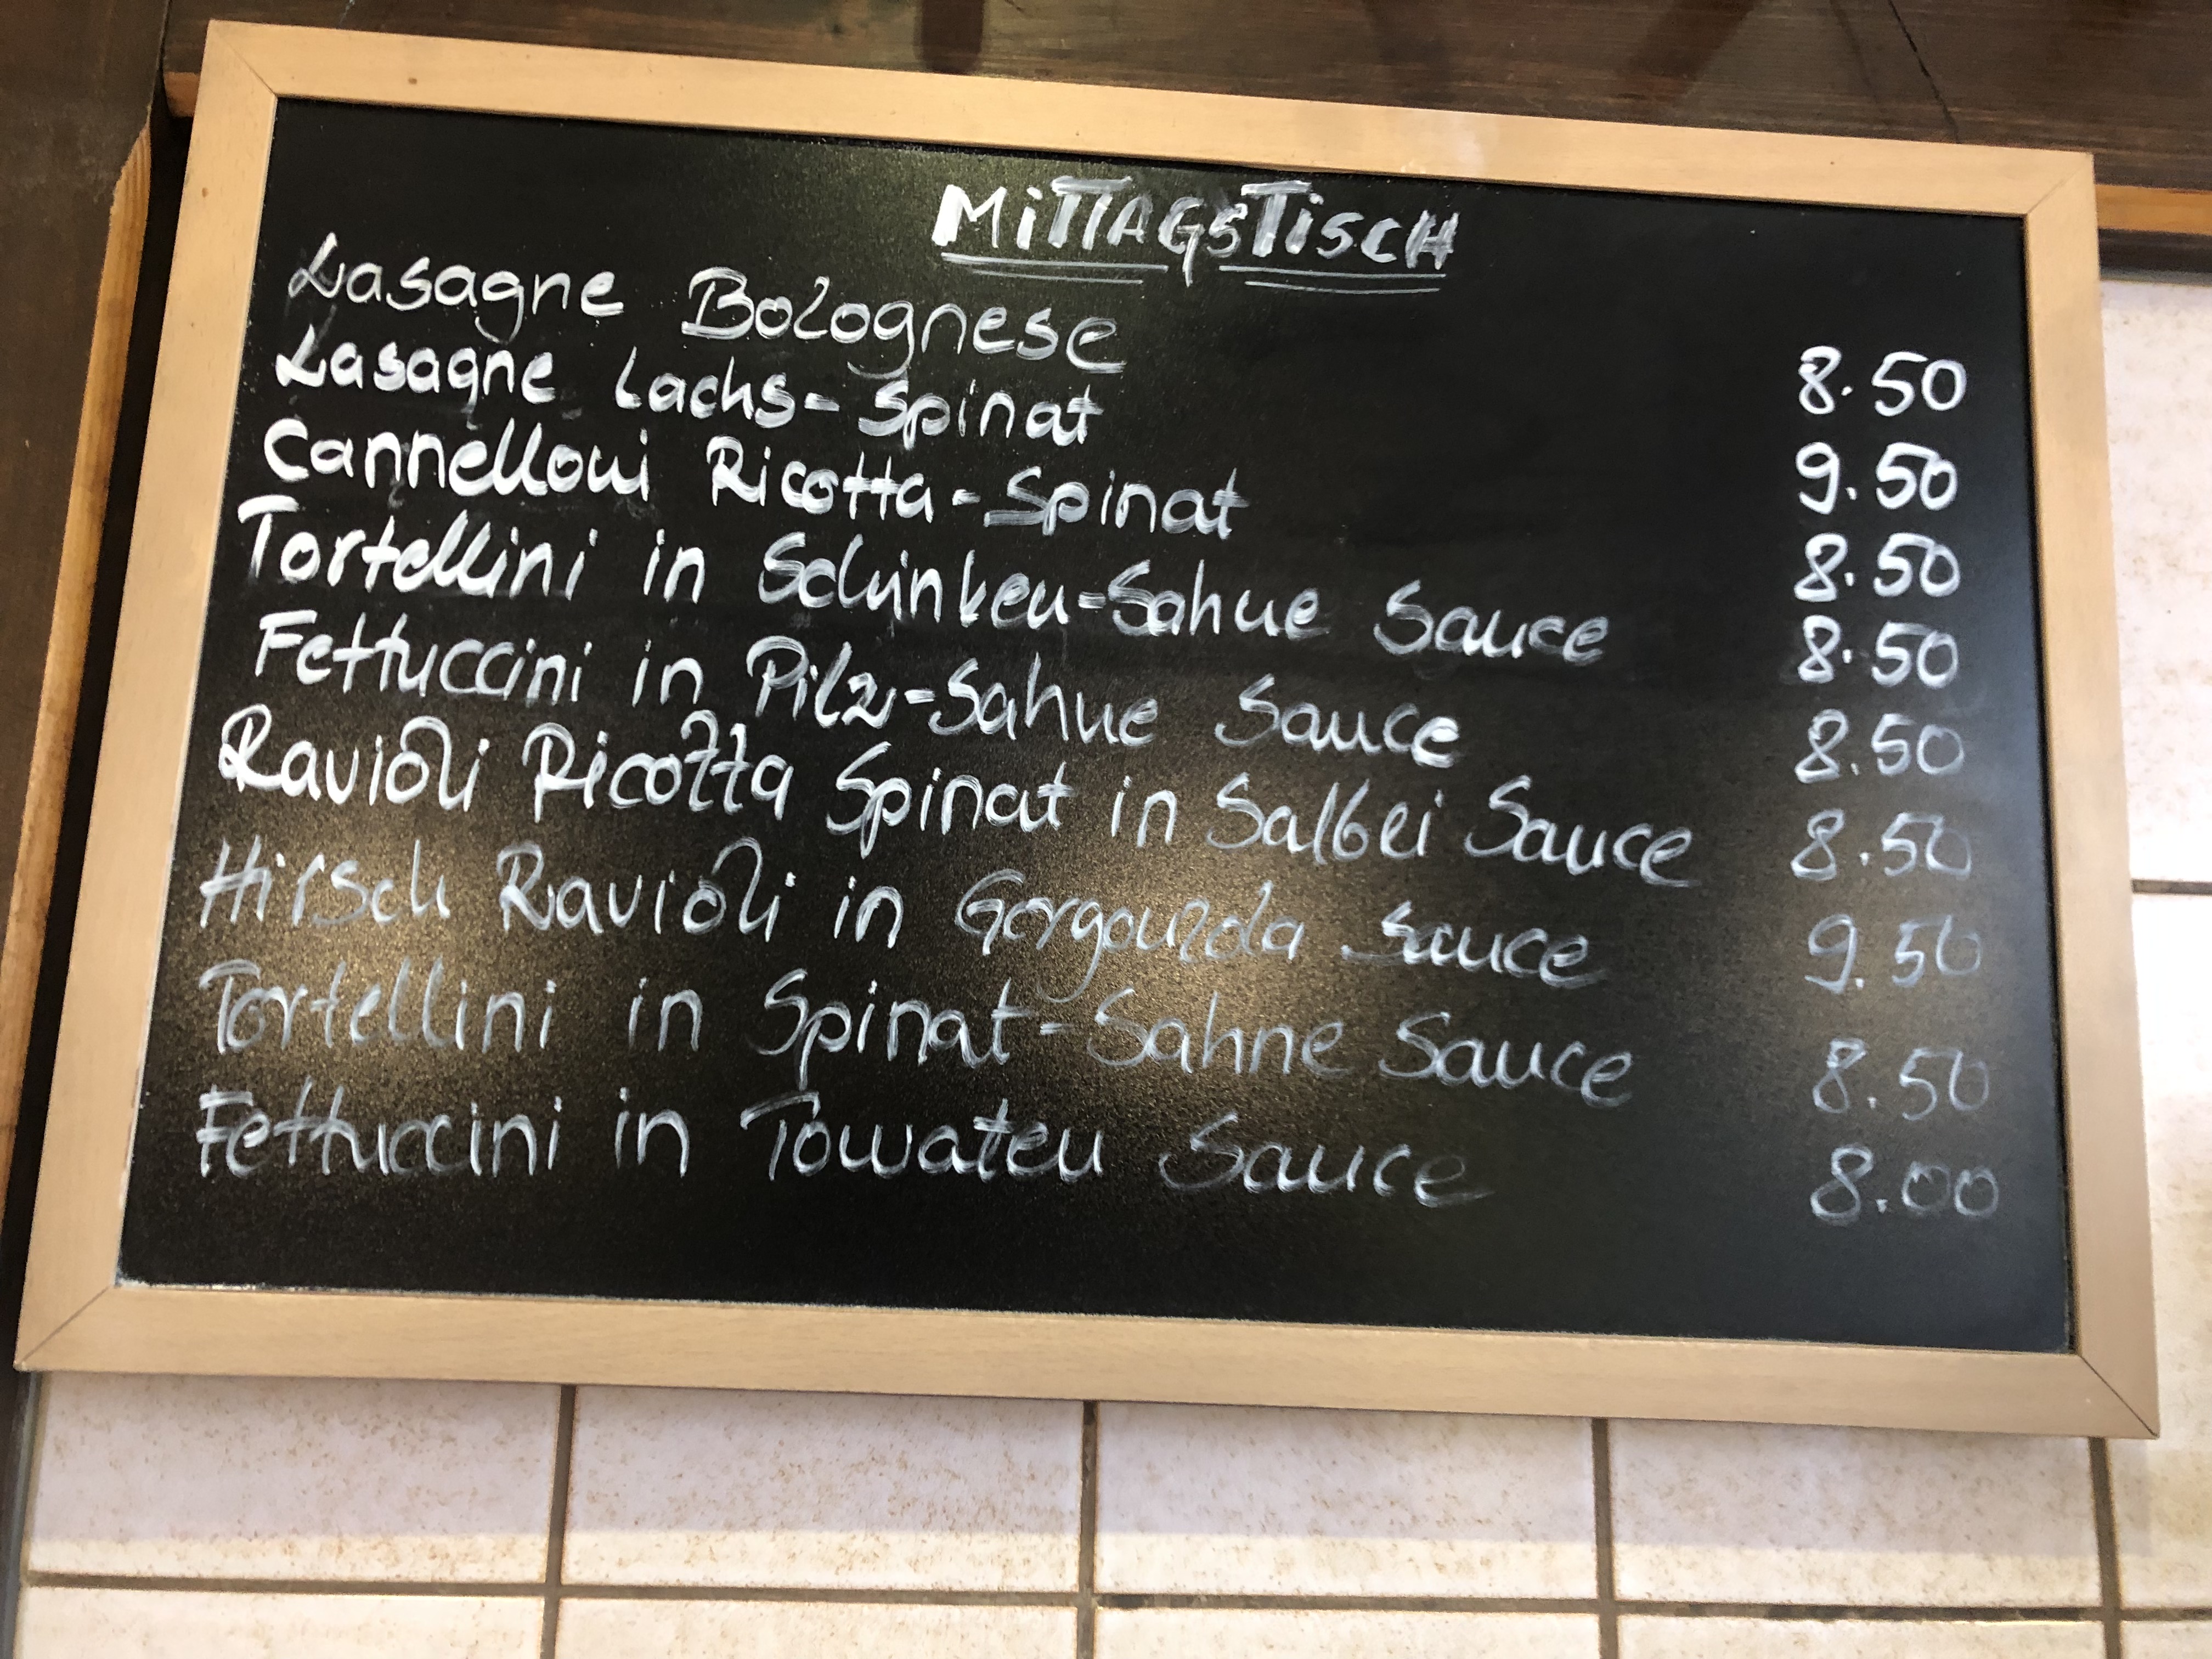 MiTTAGSTiSCH
Lasagne Bolognese 8.50
Lasagne Lachs-Spinat 9.50
Cannelloni Ricotta-Spinat 8.50
Tortellini in Schinken-Sahne Sauce 8.50
Fettuccini in Pilz-Sahne Sauce 8.50
Ravioli Ricotta Spinat in Salbei Sauce 8.50
Hirsch Ravioli in Gorgonzola Sauce 9.50
Tortellini in Spinat-Sahne Sauce 8.50
Fettuccini in Tomaten Sauce 8.00